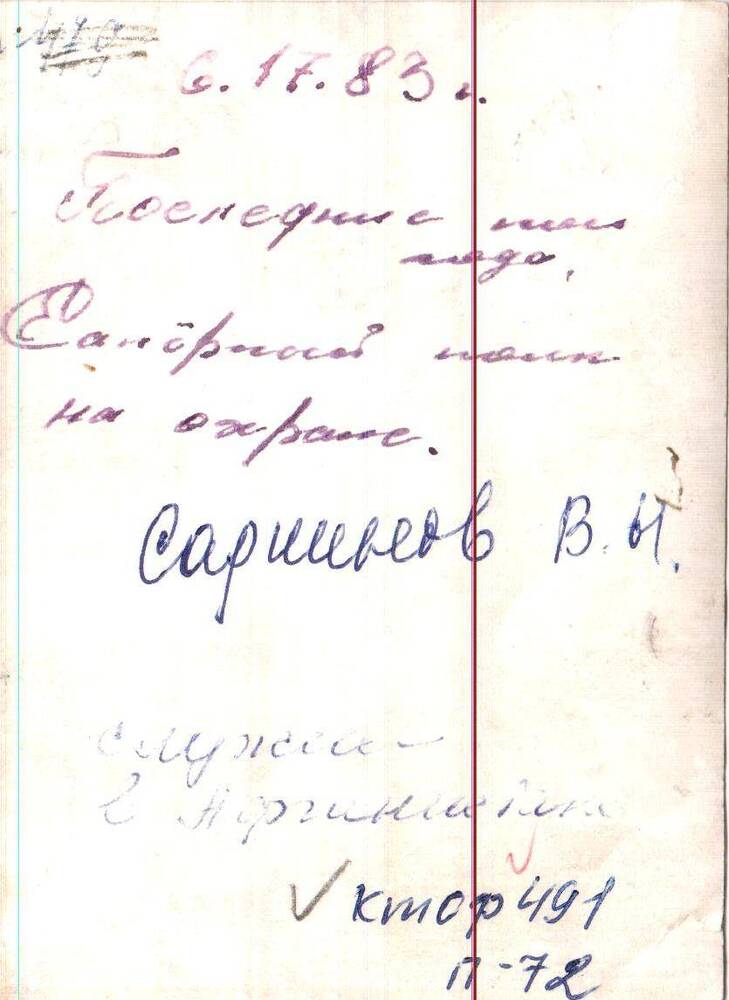 6.17.83 г.
Последние пол
года,
Сапёрный полк
на охране.
Садчиков В. Н.
служил
в Афганистане
ктоф 491
п-72